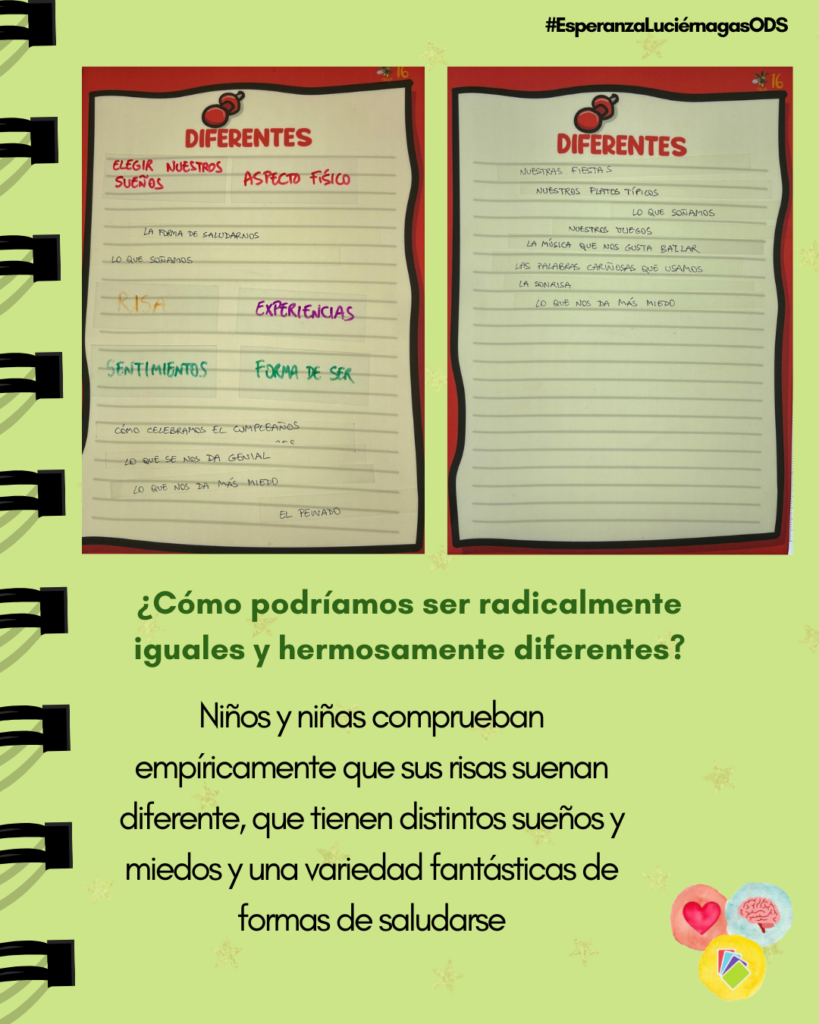 #EsperanzaLuciérnagasODS
16
DIFERENTES
ELEGIR NUESTROS
SUEÑOS
ASPECTO FÍSICO
LA FORMA DE SALUDARNOS
LO QUE SOÑAMOS
RISA
EXPERIENCIAS
SENTIMIENTOS
FORMA DE SER
CÓMO CELEBRAMOS EL CUMPLEAÑOS
LO QUE SE NOS DA GENIAL
LO QUE NOS DA MÁS MIEDO
EL PEINADO
16
DIFERENTES
NUESTRAS FIESTAS
NUESTROS PLATOS TÍPICOS
LO QUE SOÑAMOS
NUESTROS JUEGOS
LA MÚSICA QUE NOS GUSTA BAILAR
LAS PALABRAS CARIÑOSAS QUE USAMOS
LA SONRISA
LO QUE NOS DA MÁS MIEDO
¿Cómo podríamos ser radicalmente
iguales y hermosamente diferentes?
Niños y niñas comprueban
empíricamente que sus risas suenan
diferente, que tienen distintos sueños y
miedos y una variedad fantásticas de
formas de saludarse